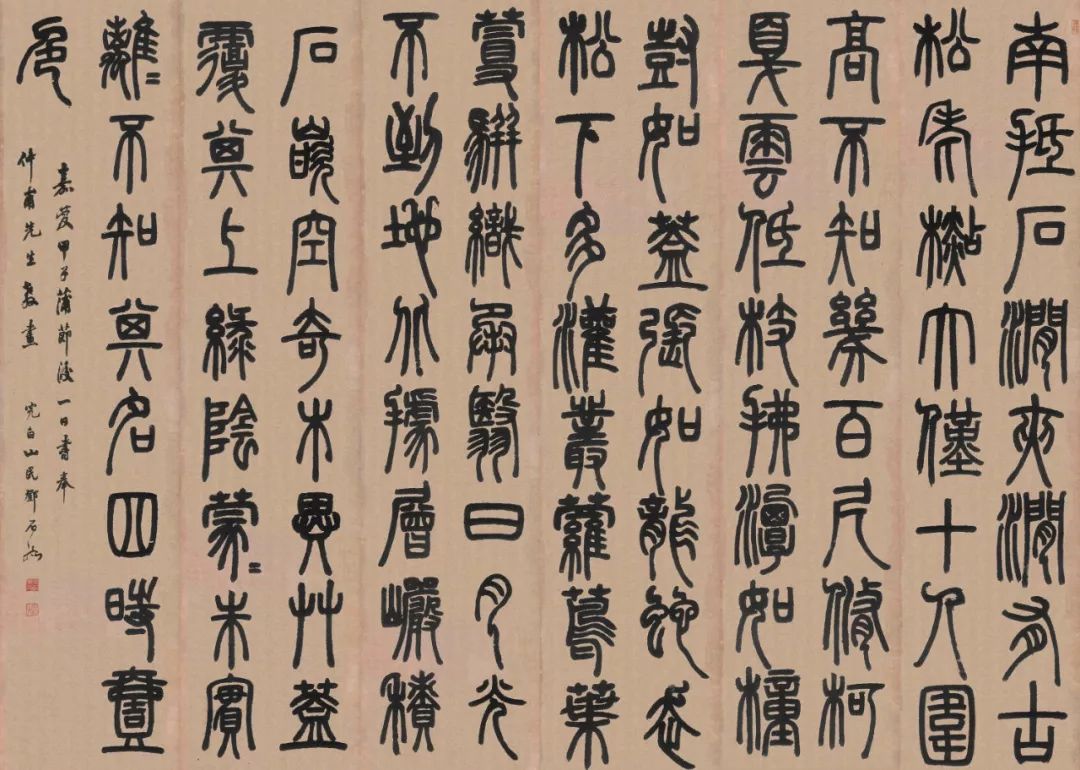 南抵石澗夾澗有古
松老檆大僅十人圍
高不知幾百尺脩柯
戛雲低枝拂潭如幢
尌如蓋張如龍蛇走
松下多灌叢蘿蔦葉
蔓駢織承翳日月光
不到地北據層巖積
石嵌空奇木異艸蓋
覆其上綠陰蒙〻朱實
離〻不知其名四時壹
色
嘉慶甲子蒲節後一日書奉
仲甫先生教畫 完白山民鄧石如